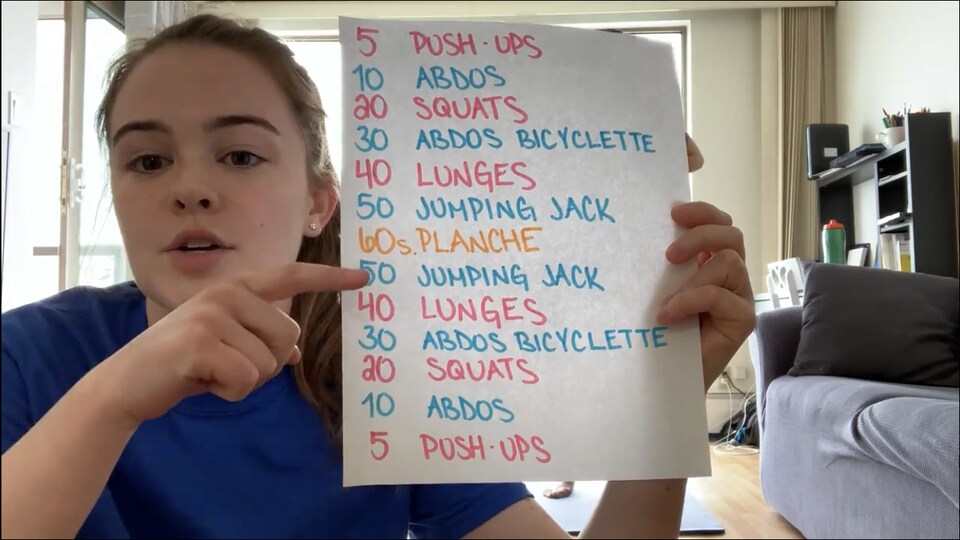 5 PUSH-UPS
10 ABDOS
20 SQUATS
30 ABDOS BICYCLETTE
40 LUNGES
50 JUMPING JACK
60s. PLANCHE
50 JUMPING JACK
40 LUNGES
30 ABDOS BICYCLETTE
20 SQUATS
10 ABDOS
5 PUSH-UPS